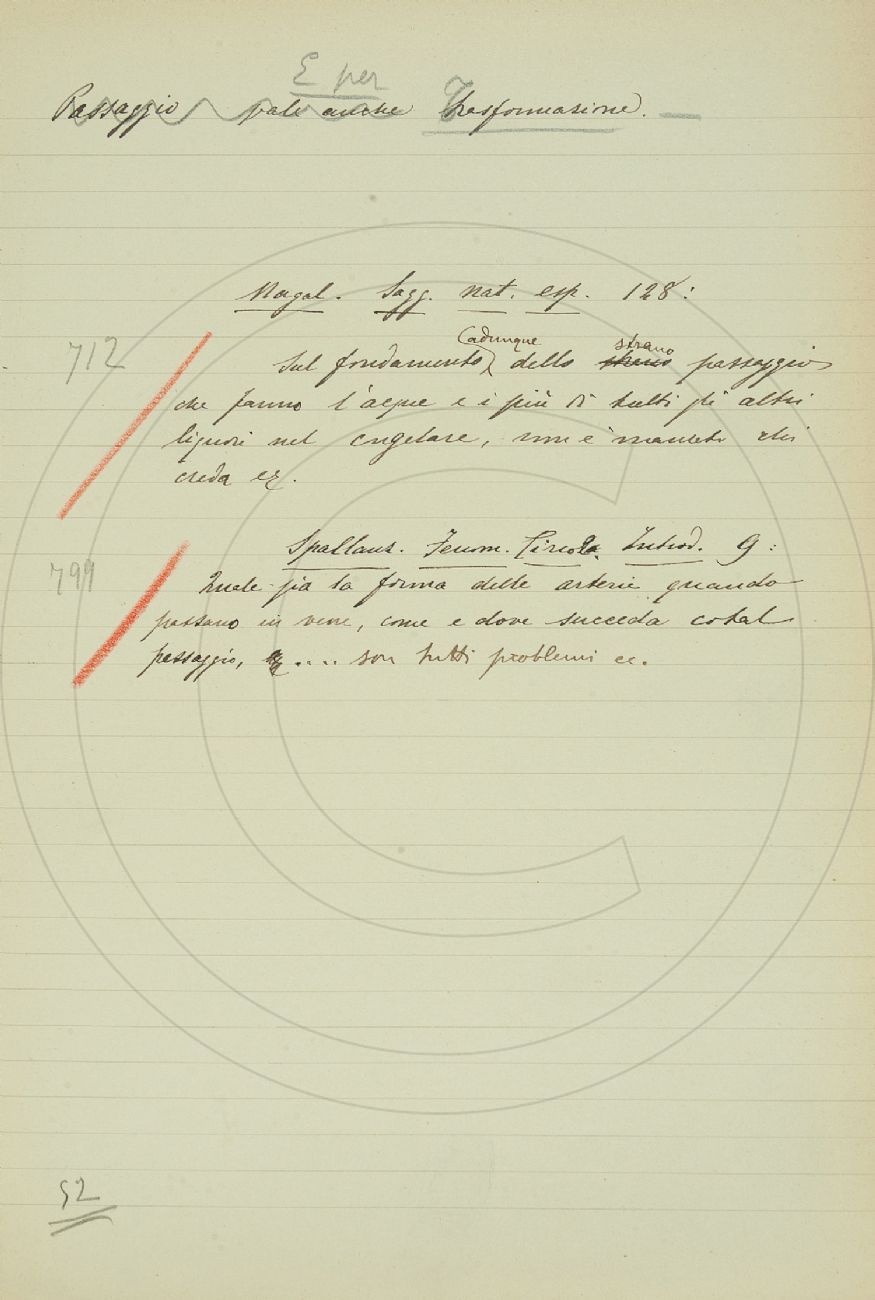 E per
Passaggio vale anche Trasformazione. —
Magal. Sagg. nat. esp. 128:
712
Sul fondamento adunque dello strano strano passaggio
che fanno l'acque e i più di tutti gli altri
liquori nel congelare, non è mancato chi
creda ec.
Spallanz. Fenom. Circola. Introd. 9:
799
Quale sia la forma delle arterie quando
passano in vene, come e dove succeda cotal
passaggio, .... son tutti problemi ec.
52